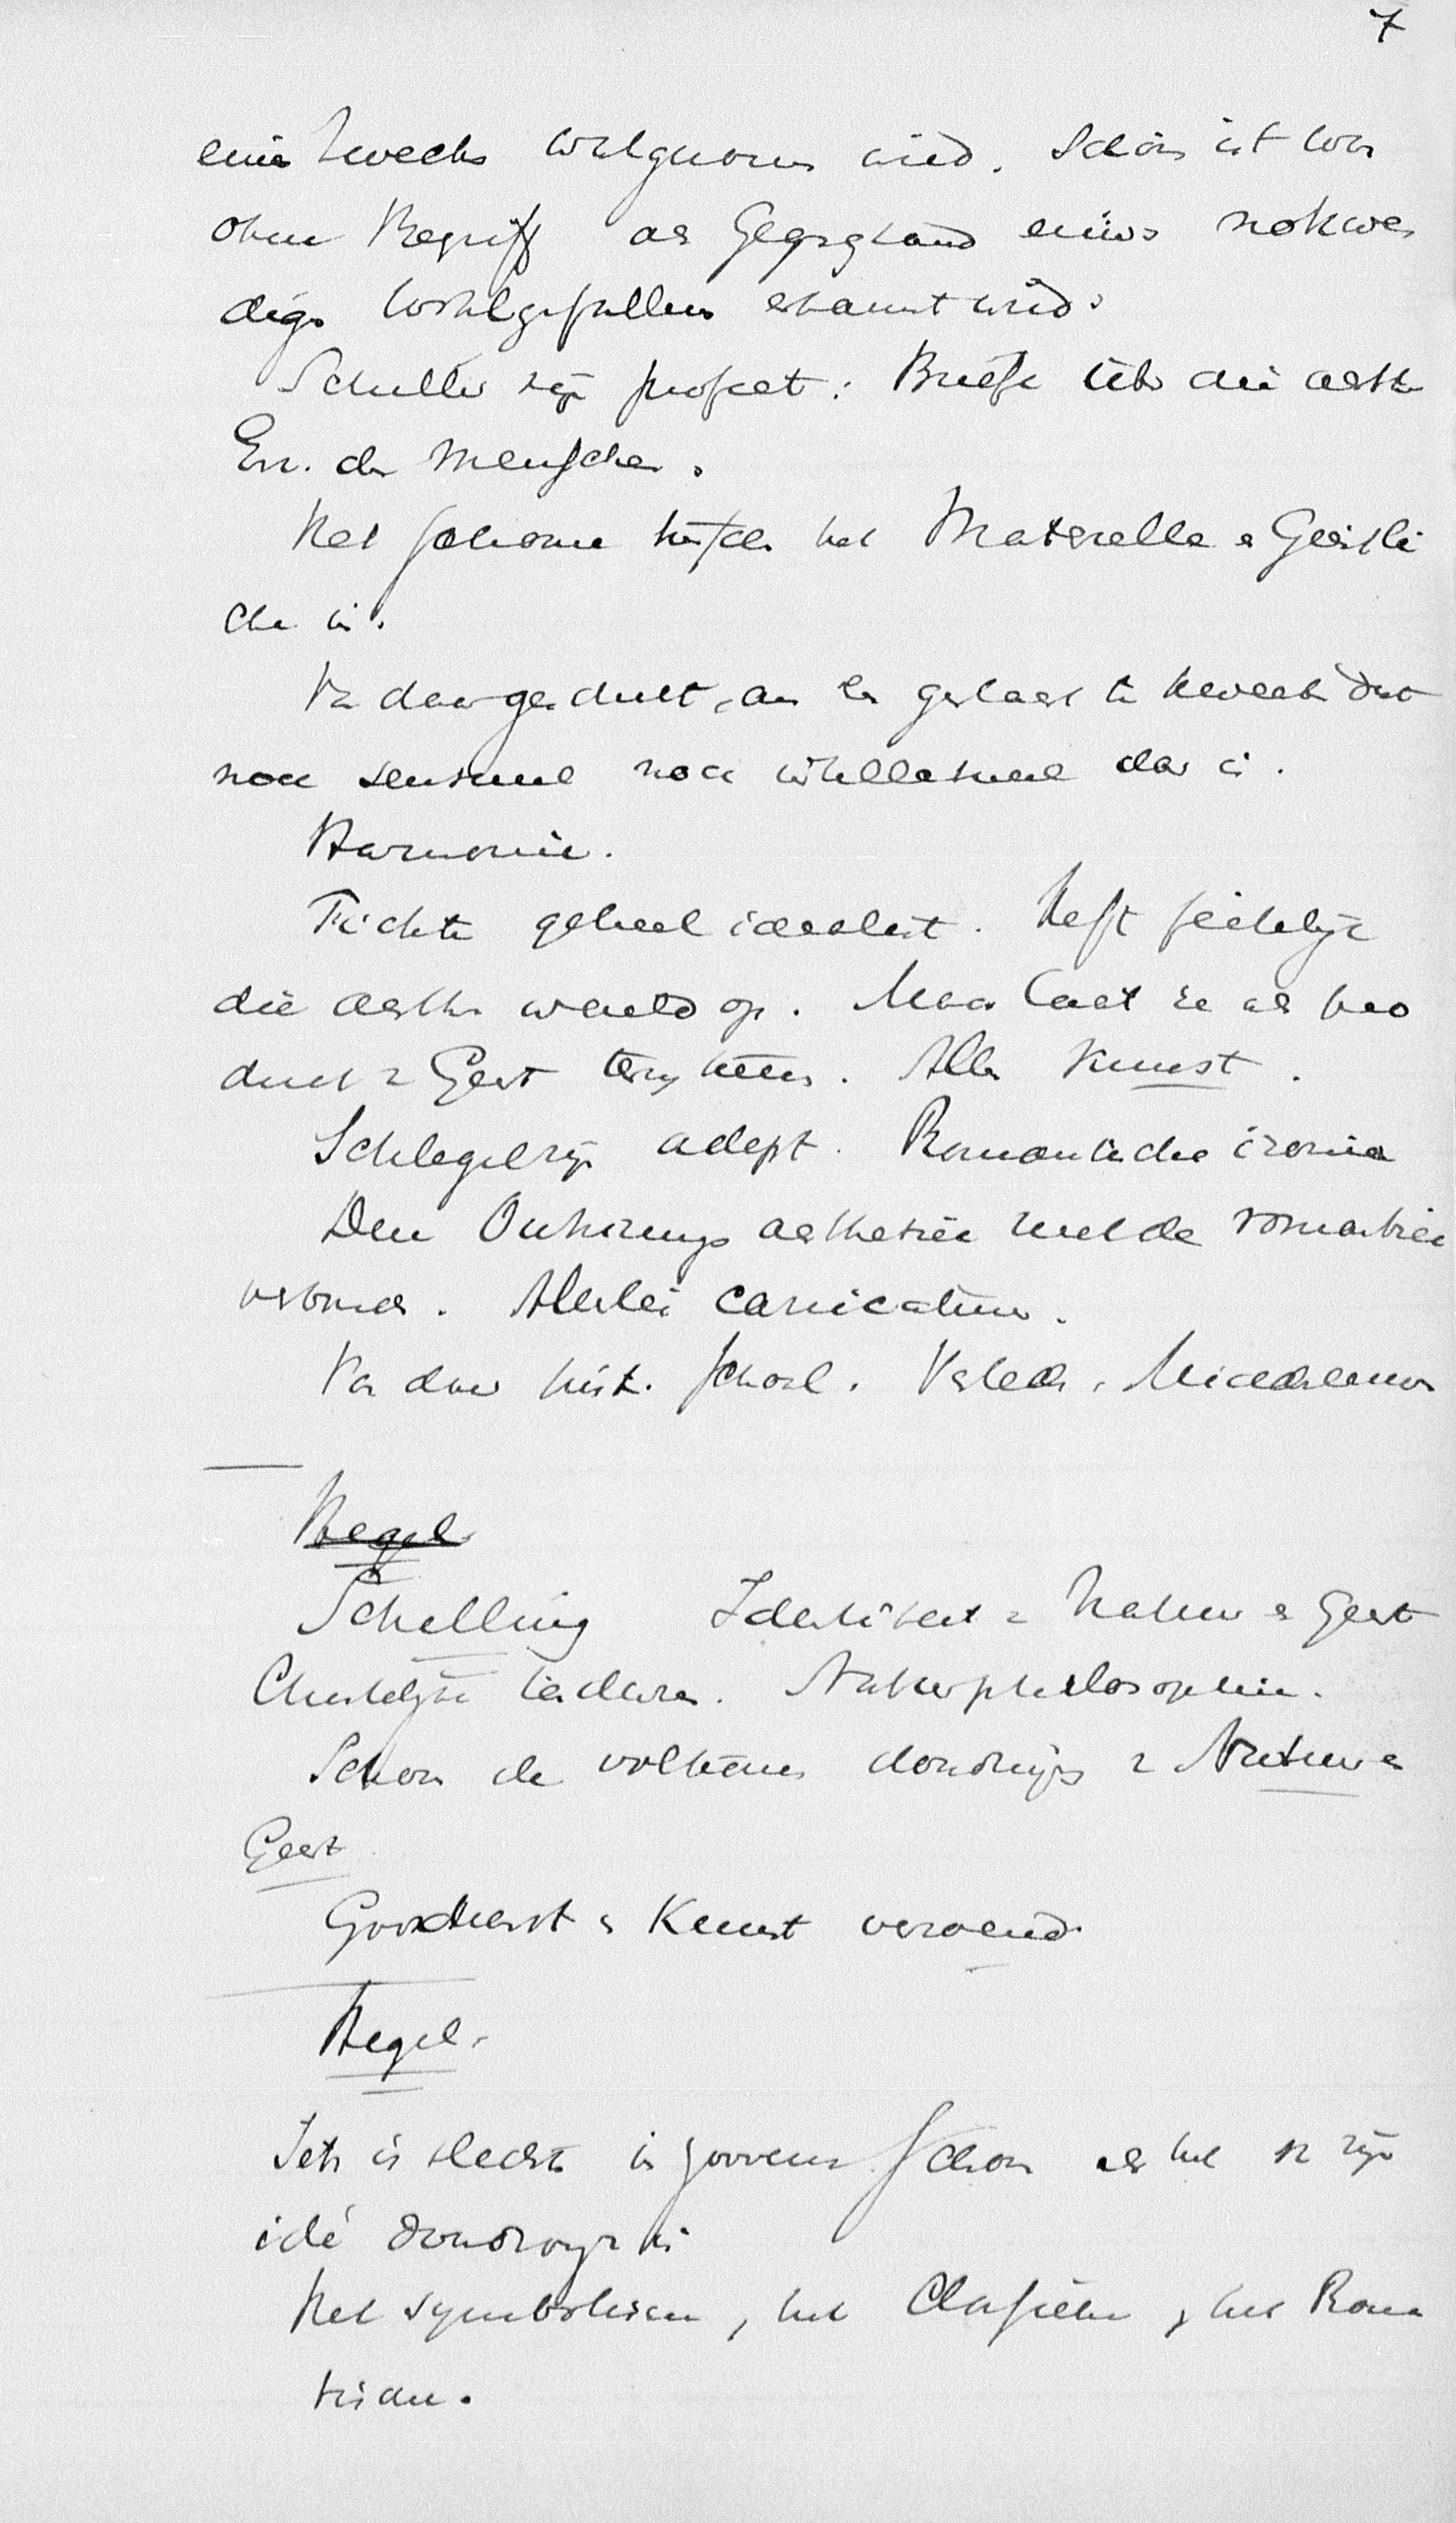 7
eines Zwecks wahrgenomen wird. Schön ist was
ohne Begriff als Gegenstand eines notwen
digen Wohlgefallens erkannt wird.
Schiller zijn profeet: Briefe über die aesth
Erz. der Menschen.
Het schoone tusschen het Materielle en Geistli
che in.
Van daar geduld, om een gestalte te kweeken dat
noch sensueel noch intellectueel dor is.
Harmonie.
Fichte geheel idealist. Heft feitelijk
die aesth. wereld op. Maar laat ze als pro
duct v Geest terugkeeren. Alle Kunst.
Schlegel zijn adept. Romantische ironie
Den Ouherengs aesthetiek met de romantiek
verbonden. Allerlei carricaturen.
Van daar hist. school. Verleden, Middeleeuwen
Hegel
Schelling Identiteit v Natuur en Geest
Christelijke Naturphilosophie.
Schoon de volkomen doordringing v Natuur en
Geest
Godsdienst en Kunst vereend.
Hegel.
Iets is slechts in zooverre schoon als het v zijn
idé doordrongen is
Het symbolische, het Classieke, het Roman
tische.